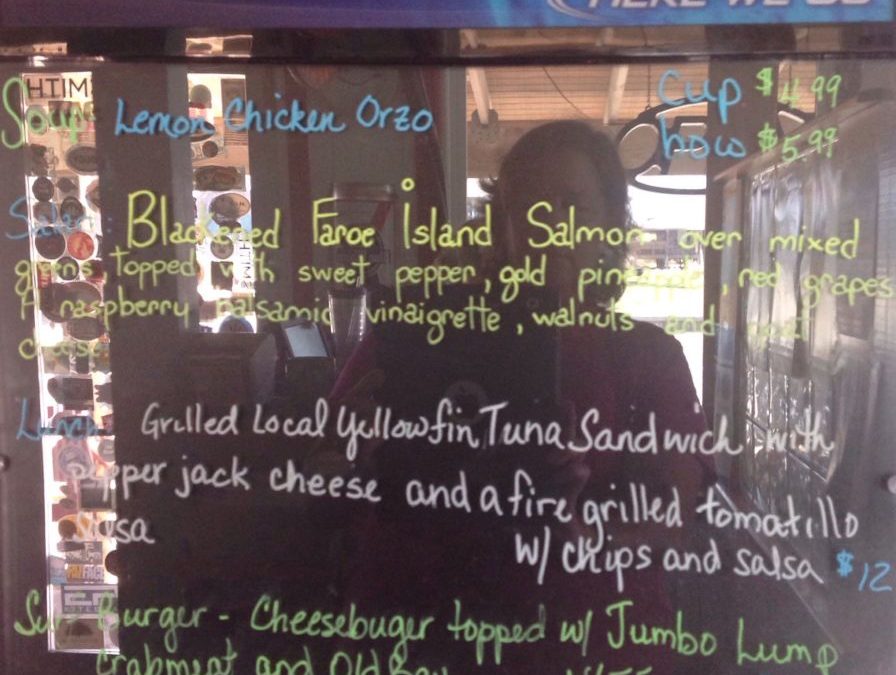 HERE WE GO
Soup Lemon Chicken Orzo Cup $4.99
bowl $5.99
Salad Blackened Faroe Island Salmon over mixed
greens topped with sweet pepper, gold pineapple, red grapes
A raspberry balsamic vinaigrette, walnuts and goat
cheese
Lunch Grilled Local Yellowfin Tuna Sandwich with
pepper jack cheese and a fire grilled tomatillo
salsa
w/ chips and salsa $12
Surf Burger - Cheesebuger topped w/ Jumbo Lump
crabmeat and Old Bay